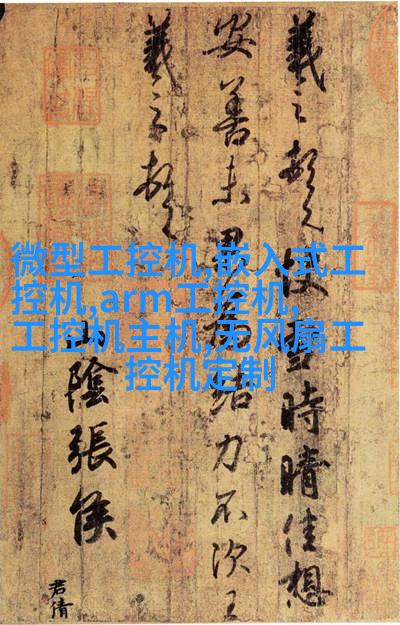 微型工控机,嵌入式工
控机,arm工控机,
工控机主机,无风扇工
控机定制
羲之頓首快雪時晴佳想
安善未果為結力不次王
羲之頓首
山陰張侯
君倩